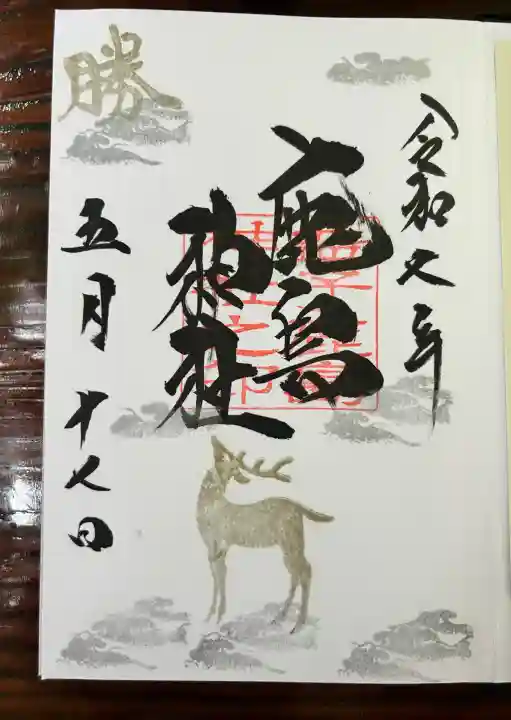 令和六年
鹿島
神社
勝
五月十八日